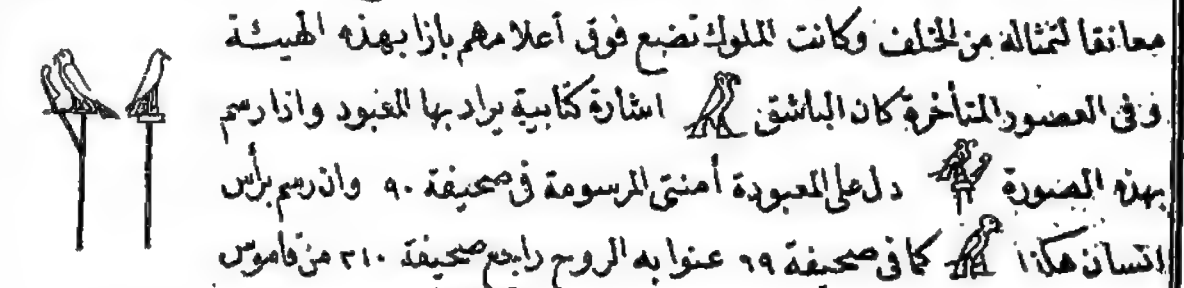 معانقا لتمثاله من الخلف وكانت الملوك تضع فوق أعلامهم بازا بهذه الهيئة
وفى العصور المتأخرة كان الباشق اشارة كتابية يراد بها المعبود واذا رسم
بهذه الصورة دل على المعبودة أمنتى المرسومة فى صحيفة ٩٠ وان رسم برأس
انسان هكذا كما فى صحيفة ٩٩ عنوا به الروح راجع صحيفة ٢١٠ من قاموس